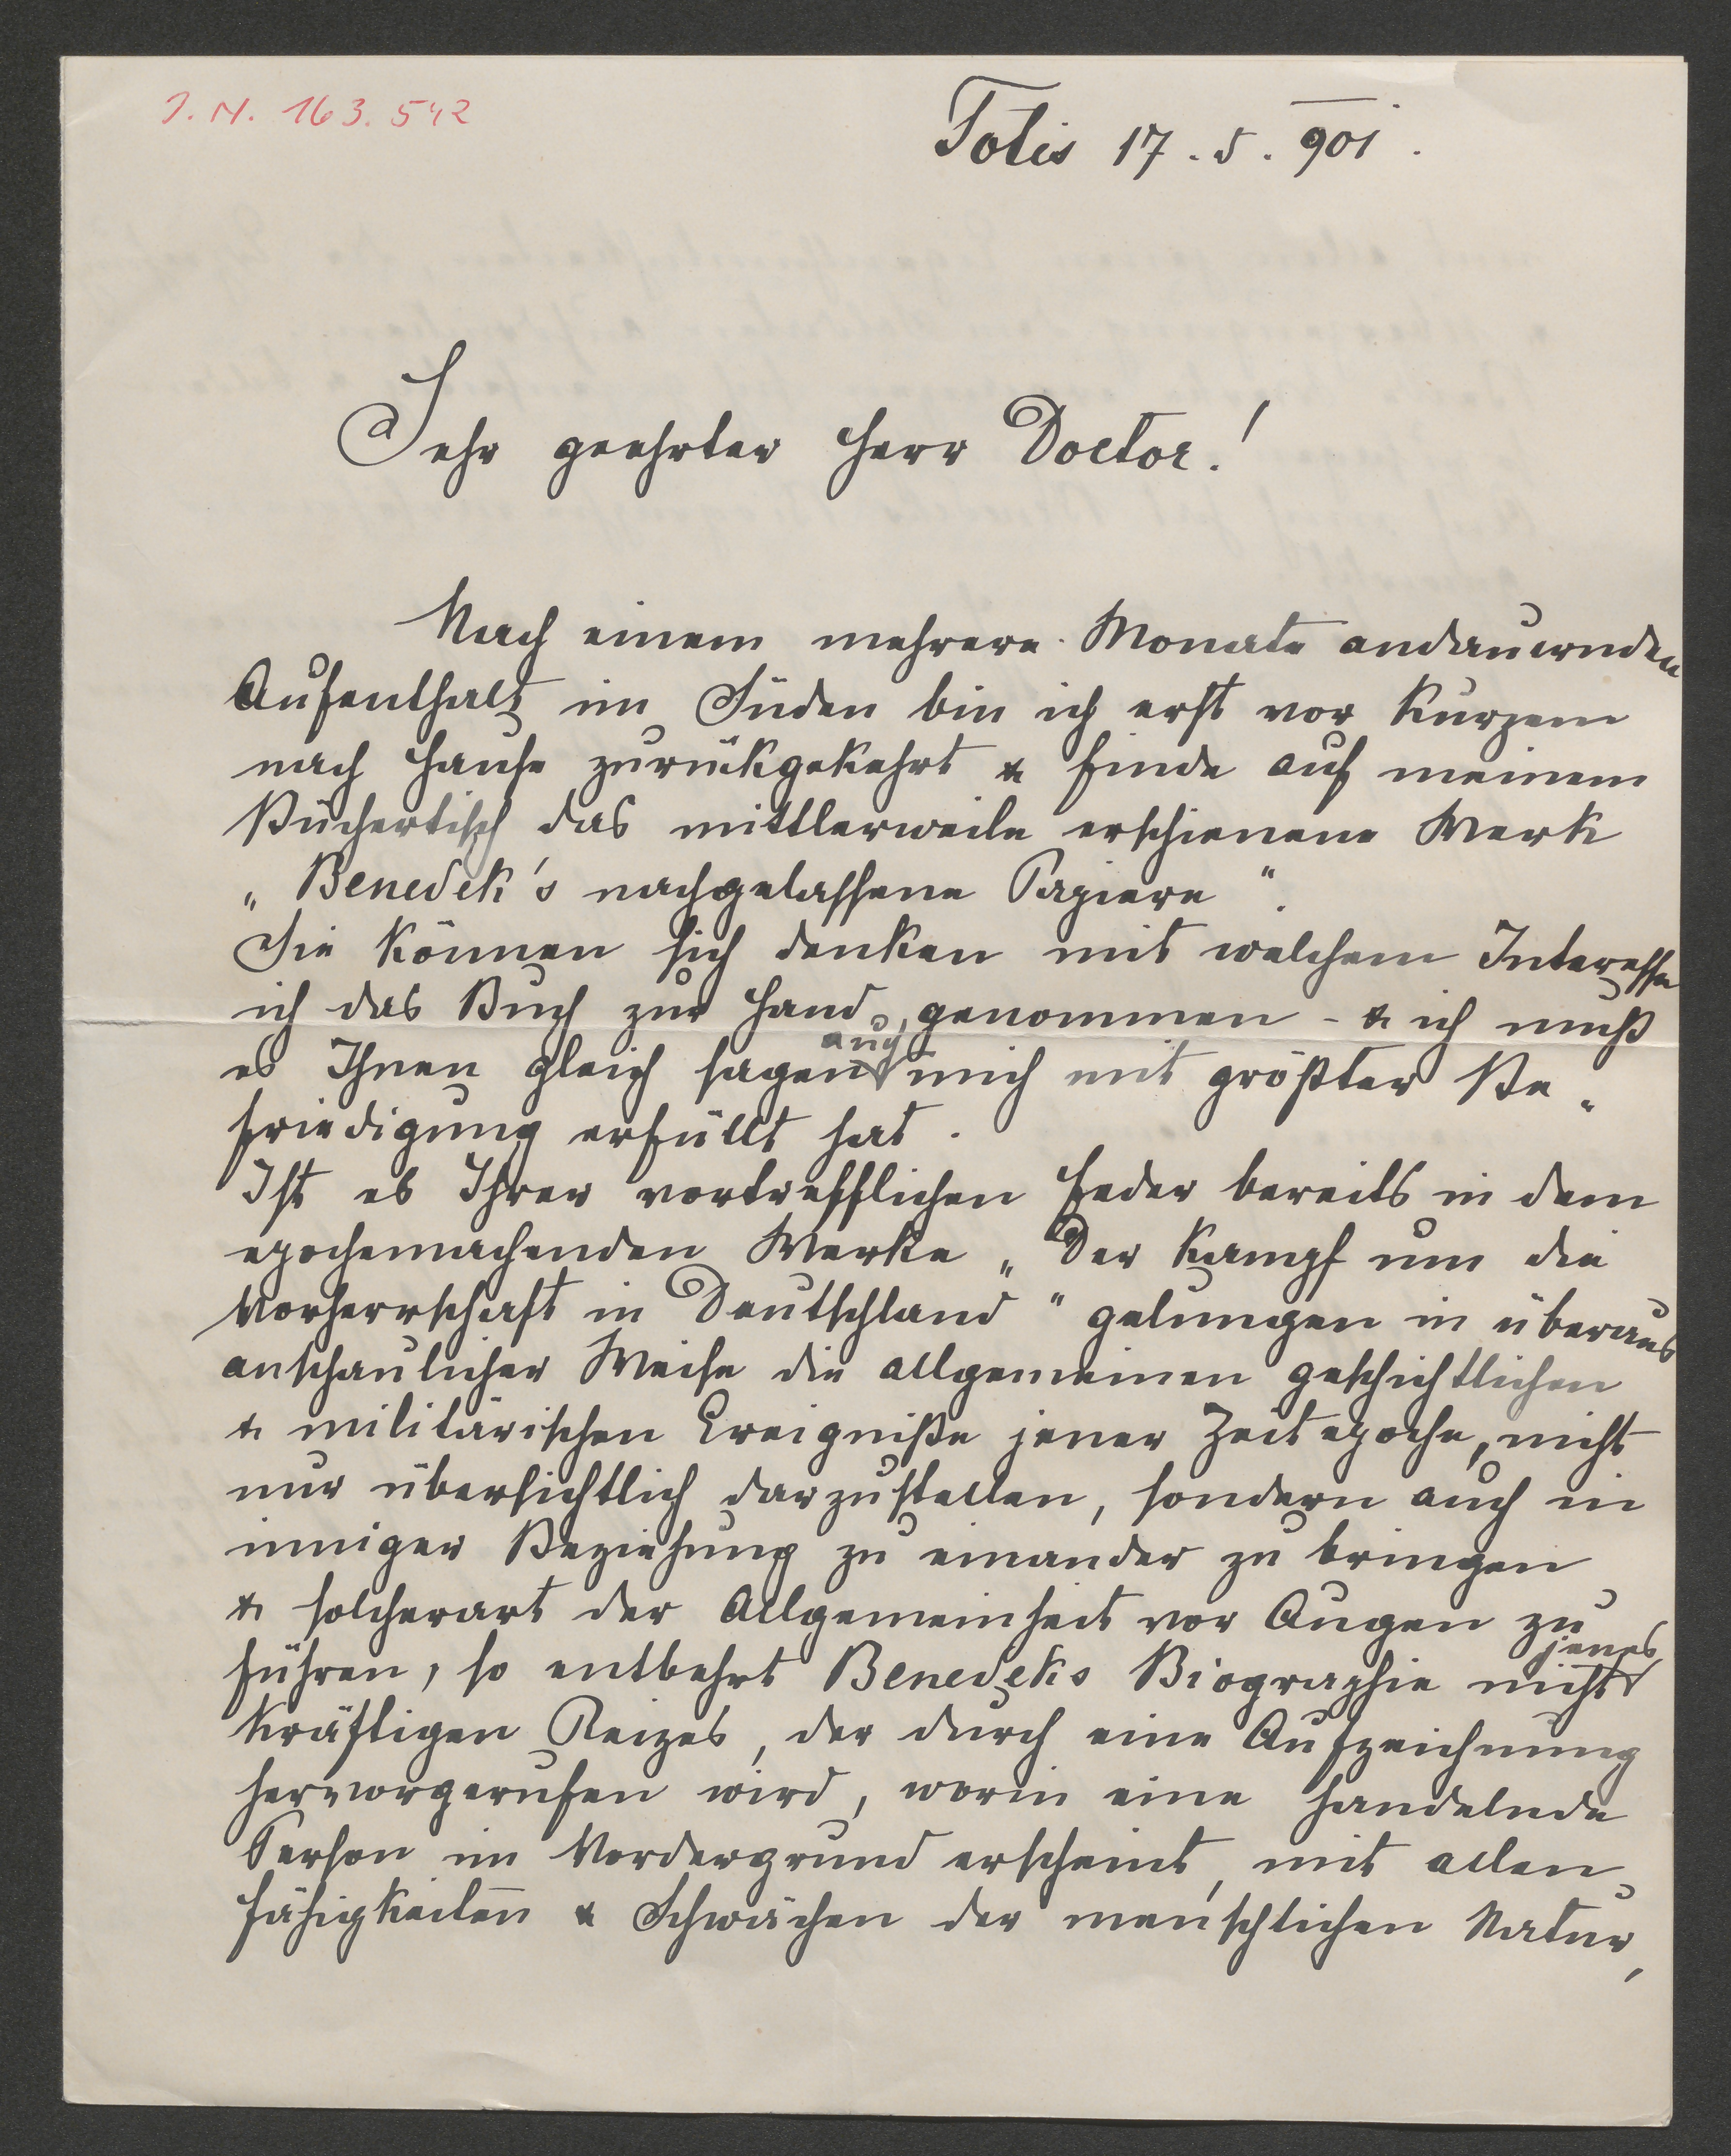 J. N. 163.542
Totis 17. 5. 901.
Sehr geehrter Herr Doctor!
Nach einem mehrere Monate andauernden
Aufenthalt im Süden bin ich erst vor Kurzem
nach Hause zurückgekehrt & finde auf meinem
Büchertisch das mittlerweile erschienene Werk
„Benedek's nachgelassene Papiere“.
Sie können sich denken mit welchem Interesse
ich das Buch zur Hand genommen – & ich muß
auch
es Ihnen gleich sagen mich mit größter Be-
friedigung erfüllt hat.
Ist es Ihrer vortrefflichen Feder bereits in dem
epochemachenden Werke „Der Kampf um die
Vorherrschaft in Deutschland“ gelungen in überaus
anschaulicher Weise die allgemeinen geschichtlichen
& militärischen Ereigniße jener Zeitepoche, nicht
nur übersichtlich darzustellen, sondern auch in
inniger Beziehung zu einander zu bringen
& solcherart der Allgemeinheit vor Augen zu
jenes
führen, so entbehrt Benedeks Biographie nicht
kräftigen Reizes, der durch eine Aufzeichnung
hervorgerufen wird, worin eine handelnde
Person im Vordergrund erscheint, mit allen
Fähigkeiten & Schwächen der menschlichen Natur,